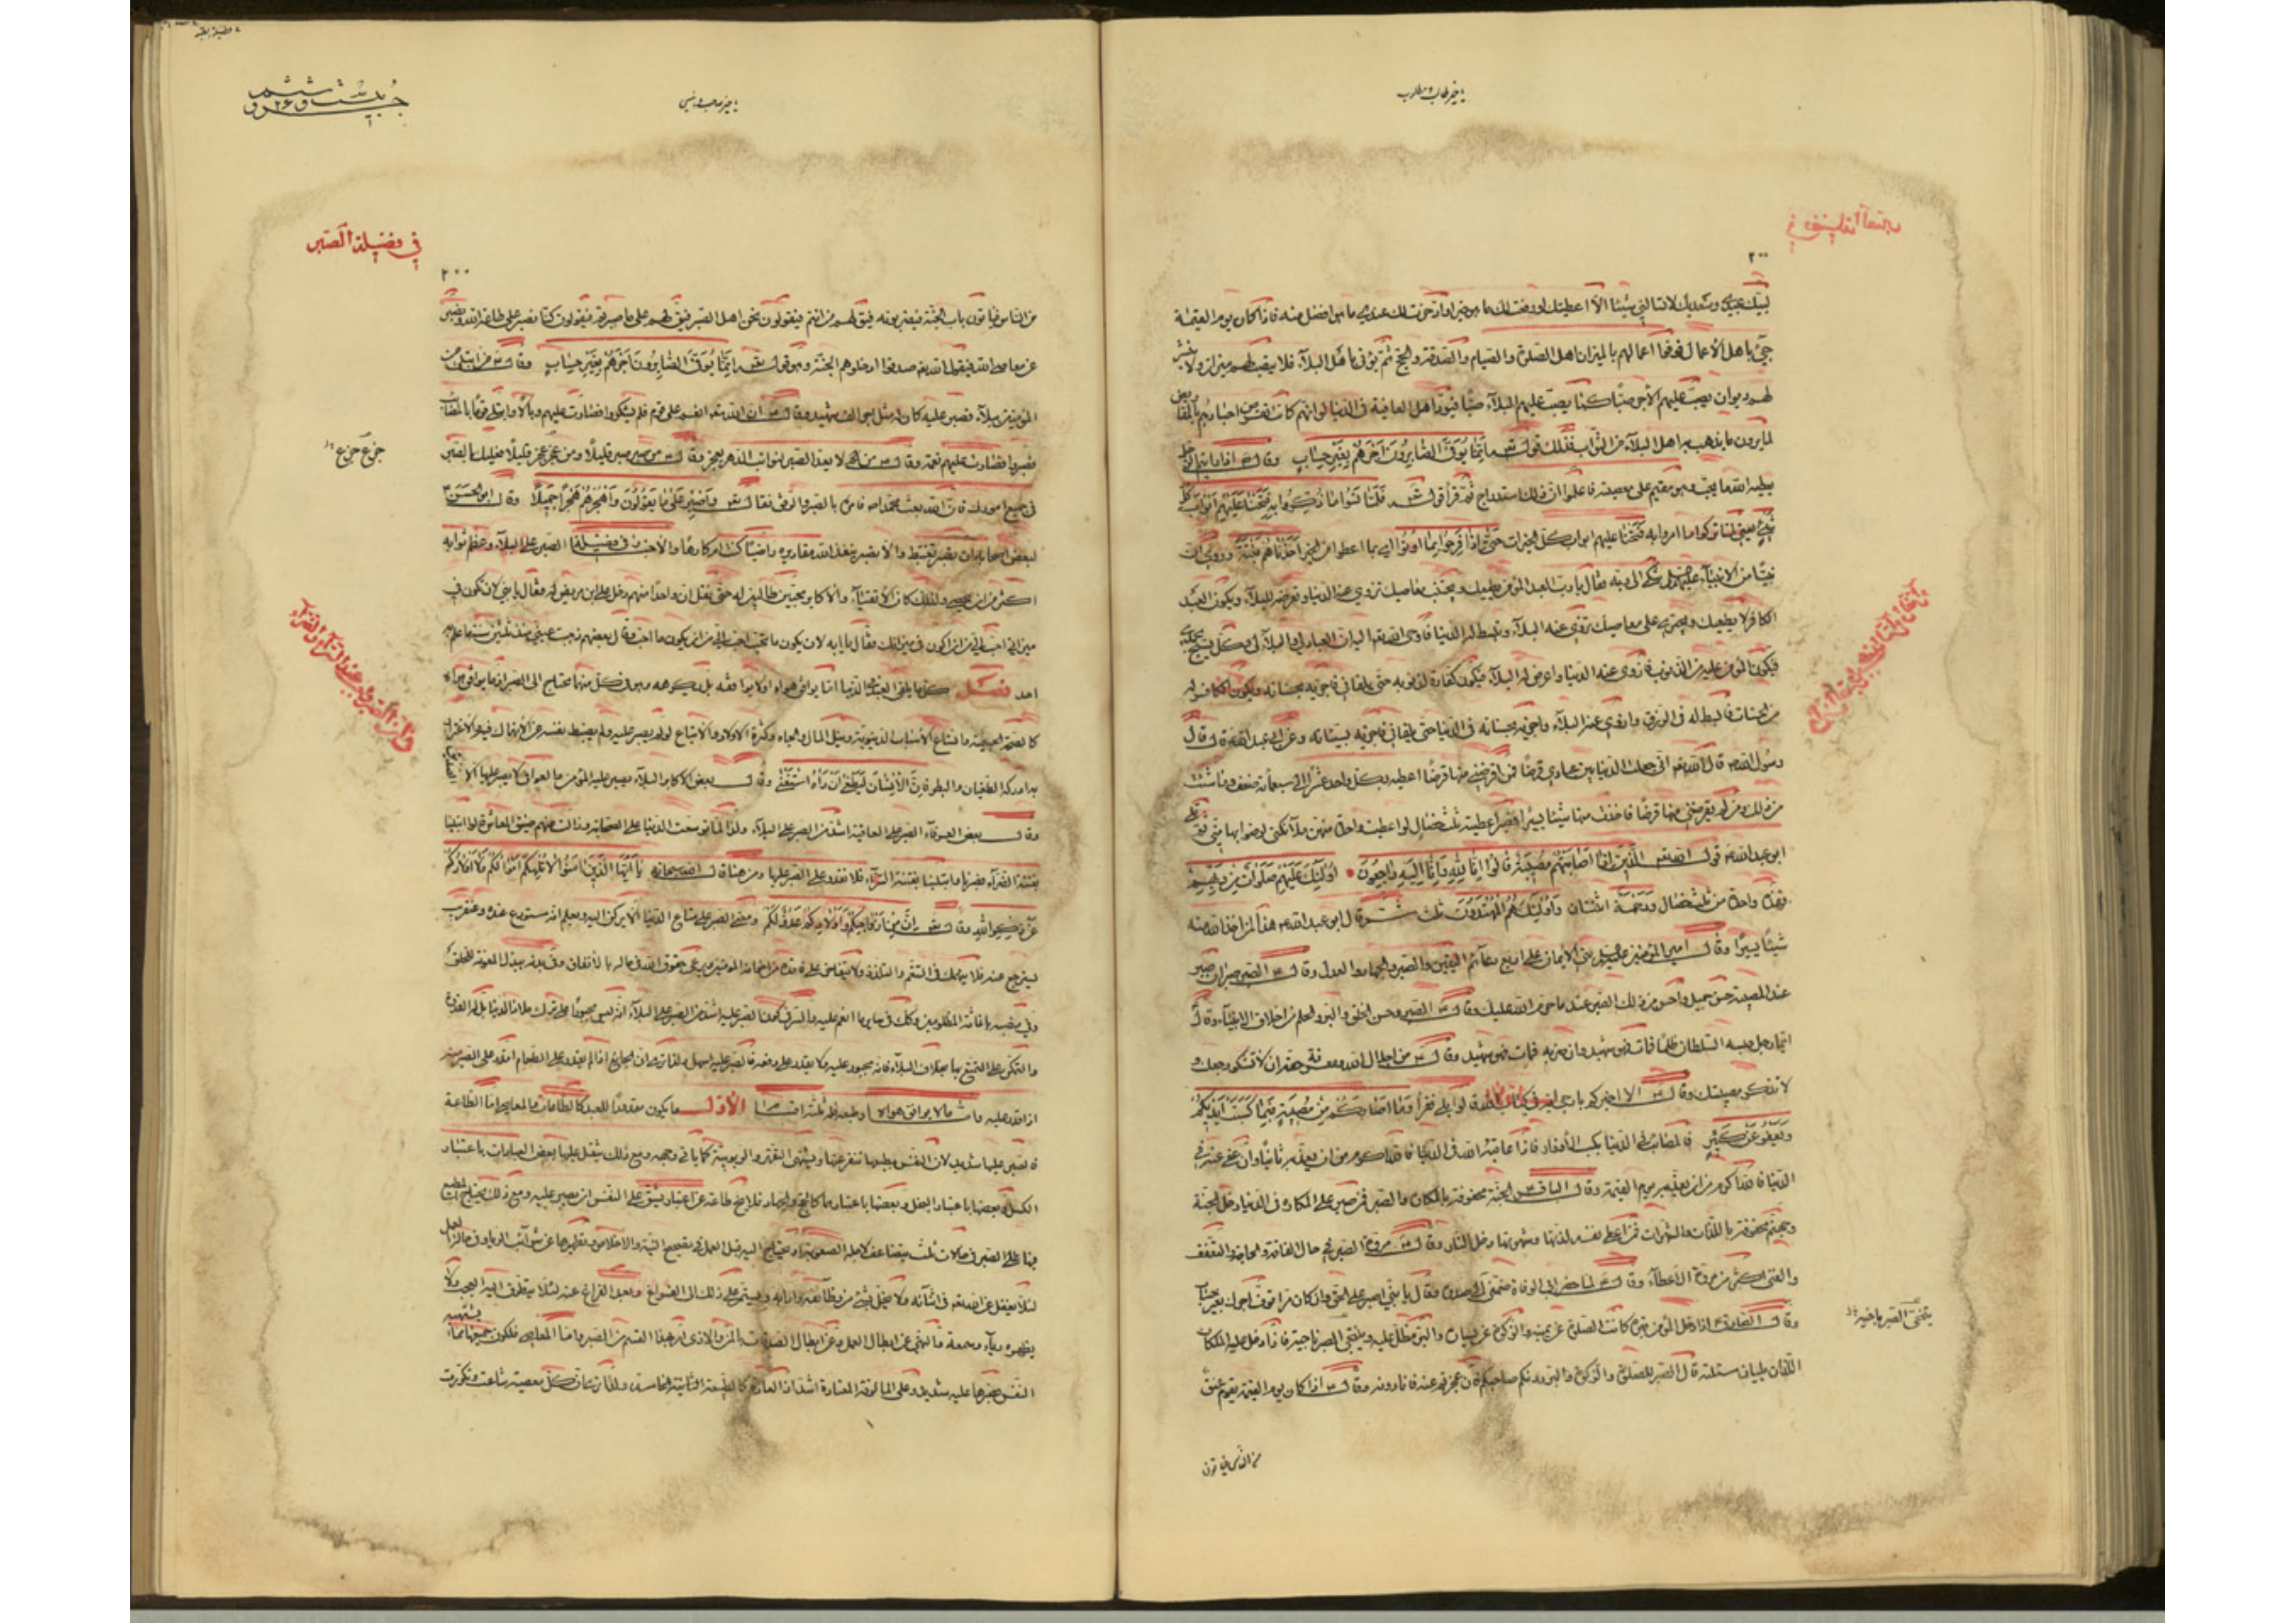 ٢٠٠
لبيك عبدي وسعديك لا تسألني شيئا الا اعطيتك او دفعت لك ما هو خير او ادخرت لك عندي ما هو افضل منه فاذا كان يوم القيمة
جيء باهل الاعمال فوفوا اعمالهم بالميزان اهل الصلوة والصيام والصدقة والحج ثم يؤتى باهل البلاء فلا ينصب لهم ميزان ولا ينشر
لهم ديوان يصب عليهم الاجر صبا كما يصب عليهم البلاء صبا فيود اهل العافية في الدنيا لو انهم كانت تقرض اجسادهم بالمقاريض
لما يرون ما يذهب به اهل البلاء من الثواب فذلك قوله تعالى إنما يوفى الصابرون أجرهم بغير حساب وقال اذا رايتم الرجل
يعطيه الله ما يحب وهو مقيم على معصيته فاعلموا ان ذلك استدراج ثم قرأ قوله فلما نسوا ما ذكروا به فتحنا عليهم أبواب كل
شيء يعني لما تركوا ما امروا به فتحنا عليهم ابواب كل الخيرات حتى إذا فرحوا بما أوتوا اي بما اعطوا من الخير أخذناهم بغتة وروي ان
نبيا من الانبياء شكى الى ربه فقال يا رب العبد المؤمن يطيعك ويجتنب معاصيك تزوي عنه الدنيا وتعرضه للبلاء ويكون العبد
الكافر لا يطيعك ويجترئ على معاصيك تزوي عنه البلاء وتبسط له الدنيا فاوحى الله تعالى اليه ان العباد لي والبلاء لي وكل يسبح بحمدي
فيكون المؤمن عليه من الذنوب فازوي عنه الدنيا واعرض له البلاء فيكون كفارة لذنوبه حتى يلقاني فاجزيه بحسناته ويكون الكافر له
من الحسنات فابسط له في الرزق وازوي عنه البلاء واجزيه بحسناته في الدنيا حتى يلقاني فاجزيه بسيئاته وعن ابي عبد الله قال قال
رسول الله قال الله اني جعلت الدنيا بين عبادي قرضا فمن اقرضني منها قرضا اعطيته بكل واحد عشرا الى سبعمائة ضعف وما شئت
من ذلك ومن لم يقرضني منها قرضا فاخذت منها شيئا يسيرا فصبر اعطيته ثلث خصال لو اعطيت واحدة منهن ملائكتي لرضوا بها مني ثم تلى
ابو عبد الله قوله تعالى الذين إذا أصابتهم مصيبة قالوا إنا لله وإنا إليه راجعون أولئك عليهم صلوات من ربهم
فهذه واحدة من ثلث خصال ورحمة اثنتان وأولئك هم المهتدون ثلث ثم قال ابو عبد الله هذا لمن اخذ الله منه
شيئا يسيرا وقال امير المؤمنين بني الايمان على اربع دعائم اليقين والصبر والجهاد والعدل وقال الصبر صبران صبر
عند المصيبة حسن جميل واحسن من ذلك الصبر عند ما حرم الله عليك وقال الصبر وحسن الخلق والبر والحلم من اخلاق الانبياء وقال
ايما رجل حبسه السلطان ظلما فمات فهو شهيد وان ضربه فمات فهو شهيد وقال من اجلال الله ومعرفة حقه ان لا تشكو وجعك و
لا تذكر مصيبتك وقال الا اخبركم بارجى اية في كتاب الله قالوا بلى فقرأ وما أصابكم من مصيبة فبما كسبت أيديكم
ويعفو عن كثير فالمصائب في الدنيا بكسب الأوزار فاذا عاقبه الله في الدنيا فالله اكرم من ان يعذبه ثانيا وان عفى عنه في
الدنيا فالله اكرم من ان يعذبه يوم القيمة وقال الباقر الجنة محفوفة بالمكاره والصبر فمن صبر على المكاره في الدنيا دخل الجنة
وجهنم محفوفة باللذات والشهوات فمن اعطى نفسه لذتها وشهوتها دخل النار وقال مروة الصبر في حال الفاقة والحاجة والتعفف
والغنى اكثر من مروة الاعطاء وقال لما حضر ابي الوفاة ضمني الى صدره وقال يا بني اصبر على الحق وان كان مرا توف اجرك بغير حساب
وقال الصادق اذا دخل المؤمن قبره كانت الصلوة عن يمينه والزكوة عن يساره والبر مطل عليه ويتنحى الصبر ناحية فاذا دخل عليه الملكان
اللذان يليان مسئلته قال الصبر للصلوة والزكوة والبر دونكم صاحبكم فان عجزتم عنه فانا دونه وقال اذا كان يوم القيمة يقوم عنق
من الناس فيأتون
في فضيلة الصبر
٢٠٠
من الناس فيأتون باب الجنة فيضربونه فيق لهم من انتم فيقولون نحن اهل الصبر فيق لهم على ما صبرتم فيقولون كنا نصبر على طاعة الله ونصبر
عن معاصي الله فيقول الله تعالى صدقوا ادخلوهم الجنة وهو قوله إنما يوفى الصابرون أجرهم بغير حساب وقال من ابتلى من
المؤمنين ببلاء فصبر عليه كان له مثل اجر الف شهيد وقال ان الله انعم على قوم فلم يشكروا فصارت عليهم وبالا وابتلى قوما بالمصائب
فصبروا فصارت عليهم نعمة وقال من لا يعد الصبر لنوائب الدهر يعجز وقال من صبر صبر قليلا ومن جزع جزع قليلا فعليك بالصبر
في جميع امورك فان الله بعث محمدا فامره بالصبر والرفق فقال واصبر على ما يقولون واهجرهم هجرا جميلا وقال ابو الحسن
لبعض اصحابه ان تصبر تغتبط والا تصبر ينفذ الله مقاديره راضيا كنت ام كارها والاخبار في فضيلة الصبر على البلاء وعظم ثوابه
اكثر من ان يحصى ولذلك كان الأتقياء والأكابر محبين طالبين له حتى نقل ان واحدا منهم دخل على ابن مريض له فقال يا بني لان تكون في
ميزاني احب الي من ان اكون في ميزانك فقال يا ابه لان يكون ما تحب احب الي من ان يكون ما احب وقال بعضهم ذهبت عيني منذ ثلثين سنة ما علم به
احد فصل كل ما يلقى العبد في الدنيا اما يوافق هواه او لا يوافقه بل يكرهه وهو في كل منهما محتاج الى الصبر اذ ما يوافق هواه
كالصحة الجسمية واتساع الأسباب الدنيوية ونيل المال والجاه وكثرة الاولاد والأتباع لو لم يصبر عليه ولم يضبط نفسه عن الانهماك فيه والاغترار
به ادركه الطغيان والبطر فإن الإنسان ليطغى أن رآه استغنى وقال بعض الاكابر البلاء يصبر عليه المؤمن والعوافي لا يصبر عليها الا صديق
وقال بعض العرفاء الصبر على العافية اشد من الصبر على البلاء ولذا لما توسعت الدنيا على الصحابة وزالت عنهم ضيق المعاش قالوا ابتلينا
بفتنة الضراء فصبرنا وابتلينا بفتنة السراء فلا نقدر على الصبر عليها ومن هنا قال الله سبحانه يا أيها الذين آمنوا لا تلهكم أموالكم ولا أولادكم
عن ذكر الله وقال إن من أزواجكم وأولادكم عدوا لكم ومعنى الصبر على متاع الدنيا ألا يركن اليه ويعلم انه مستودع عنده وعنقريب
يسترجع عنه فلا ينهمك في التنعم والتلذذ ولا يتفاخر على فاقده من اخوانه المؤمنين ويرعى حقوق الله في ماله بالانفاق وفي بدنه ببذل المعونة للخلق
وفي منصبه باعانة المظلومين وكذلك في سائر ما انعم عليه والسر في كون الصبر عليه اشد من الصبر على البلاء انه ليس مجبورا على ترك ملاذ الدنيا بل له القدرة
والتمكن على التمتع بها بخلاف البلاء فانه مجبور عليه ولا يقدر على دفعه فالصبر عليه اسهل ولذا ترى ان الجائع اذا لم يقدر على الطعام اقدر على الصبر منه
اذا قدر عليه واما ما لا يوافق هواه وطبعه فله ثلثة اقسام الأول ما يكون مقدورا للعبد كالطاعات والمعاصي اما الطاعة
فالصبر عليها شديد لان النفس بطبعها تنفر عنها وتشتهي التقهر والربوبية كما يأتي وجهه ومع ذلك يثقل عليها بعض العبادات باعتبار
الكسل وبعضها باعتبار البخل وبعضها باعتبارهما كالحج والجهاد فلا يخ طاعة عن اعتبار يشق على النفس ان تصبر عليه ومع ذلك يحتاج المطيع
فيها الى الصبر في حالات ثلث يتضاعف لاجله الصعوبة اذ يحتاج اليه قبل العمل في تصحيح النية والاخلاص وتطهيرها عن شوائب الرياء وفي حالة العمل
لئلا يغفل عن الله في اثنائه ولا يخل بشيء من وظائفه وادابه ويستمر على ذلك الى الفراغ وبعد الفراغ عنه لئلا يتطرق اليه العجب ولا
يظهره رياء وسمعة والنهي عن ابطال العمل وعن ابطال الصدقات بالمن والاذى امر بهذا القسم من الصبر واما المعاصي فلكون جميعها مما تشتهيه
النفس فصبرها عليه شديد وعلى المألوفة المعتادة اشد اذ العادة كالطبيعة الثانية الخامسة ولذا ترى ان كل معصية شاعت وتكررت